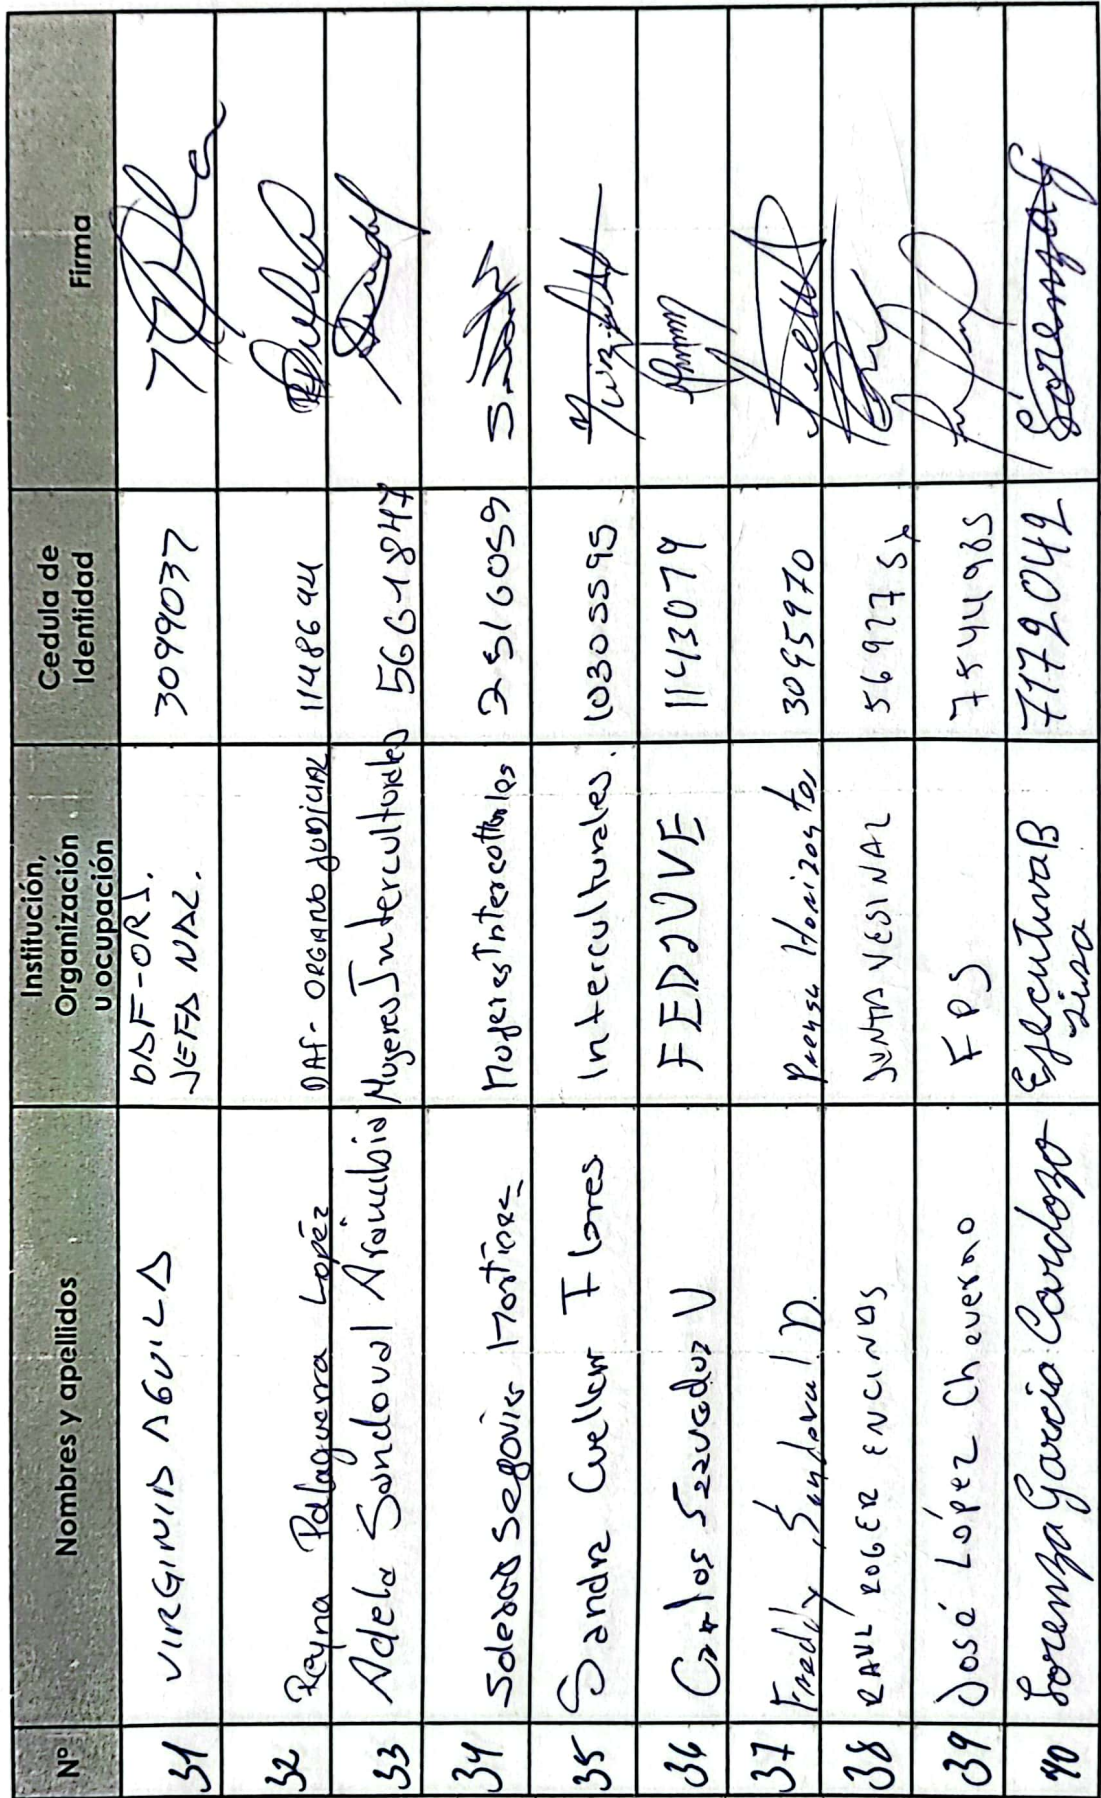 Nº Nombres y apellidos Institución, Organización u ocupación Cedula de Identidad Firma
31 VIRGINIA AGUILA DAF-ORJ. JEFA NAL. 3099037
32 Reyna Palaguerra López DAF- ORGANO JUDICIAL 1148644
33 Adela Sandoval Aramubio Mugeres Interculturales 5661847
34 Soledad Segovia Martinez Mugeres Interculturales 2516059
35 Sandra Cuellar Flores Interculturales. 10305595
36 Carlos Saavedra V FEDJUVE 1143079
37 Freddy Sandoval D. Prensa Horizontes 3095970
38 RAUL ROGER ENCINAS JUNTA VESINAL
39 José López Chaverno FPS 7544985
40 Lorenza Garcia Cardozo Ejecutiva B Sisa 71792042 Lorenza G